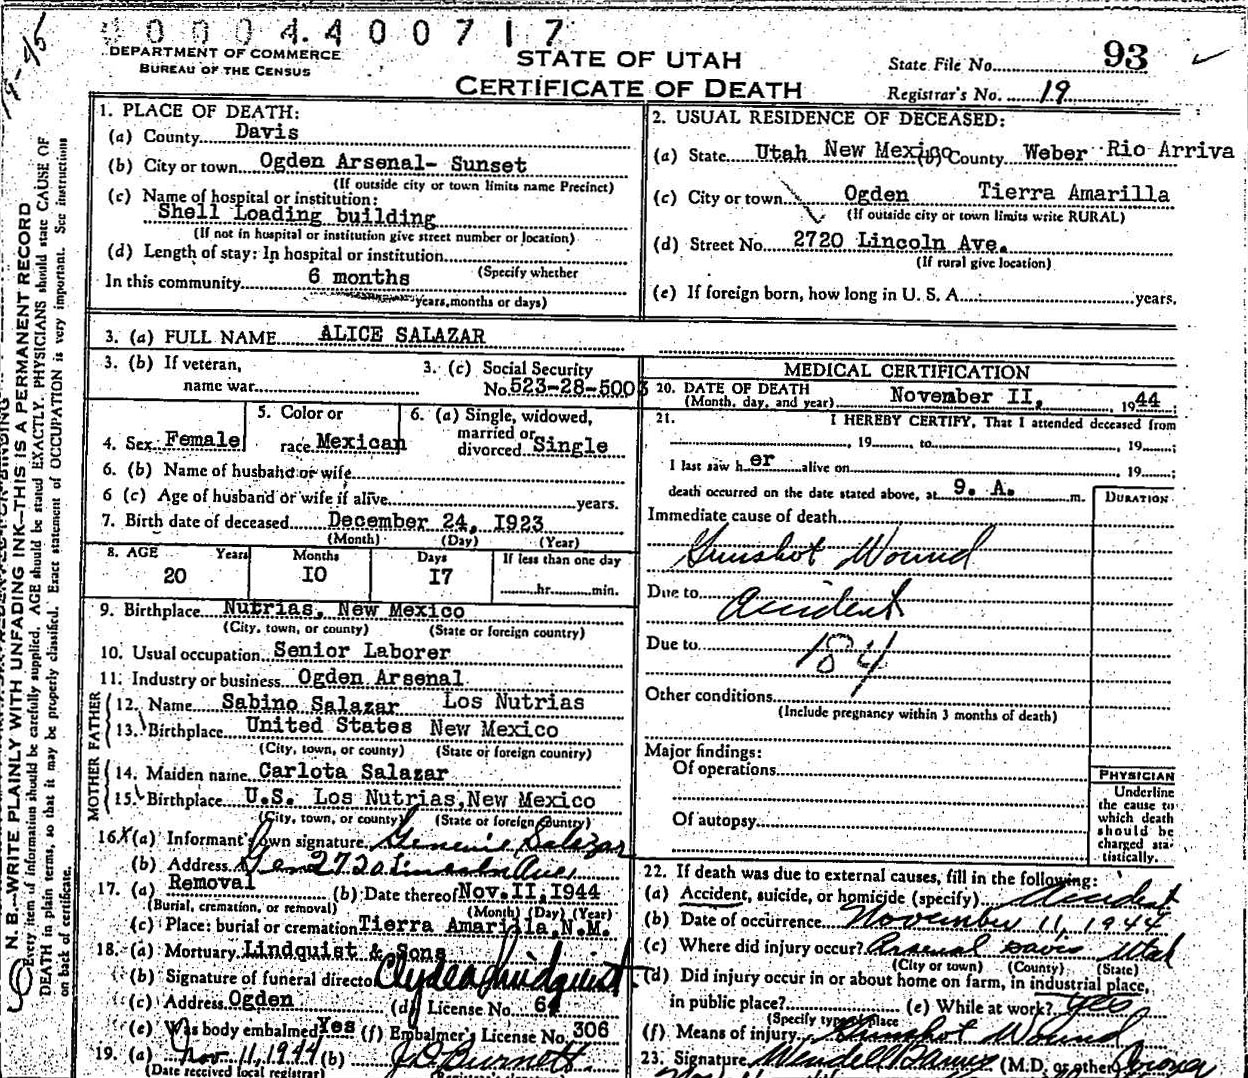 0000 4.400717
19-45
DEPARTMENT OF COMMERCE
BUREAU OF THE CENSUS
STATE OF UTAH
CERTIFICATE OF DEATH
State File No. 93
Registrar's No. 19
N. B.—WRITE PLAINLY WITH UNFADING INK—THIS IS A PERMANENT RECORD
Every item of information should be carefully supplied. AGE should be stated EXACTLY. PHYSICIANS should state CAUSE OF
DEATH in plain terms, so that it may be properly classified. Exact statement of OCCUPATION is very important. See instructions
on back of certificate.
1. PLACE OF DEATH:
(a) County Davis
(b) City or town Ogden Arsenal- Sunset
(If outside city or town limits name Precinct)
(c) Name of hospital or institution:
Shell Loading building
(If not in hospital or institution give street number or location)
(d) Length of stay: In hospital or institution
(Specify whether
In this community 6 months
years, months or days)
2. USUAL RESIDENCE OF DECEASED:
(a) State Utah New Mexico (b) County Weber Rio Arriva
(c) City or town Ogden Tierra Amarilla
(If outside city or town limits write RURAL)
(d) Street No. 2720 Lincoln Ave.
(If rural give location)
(e) If foreign born, how long in U. S. A. years.
3. (a) FULL NAME ALICE SALAZAR
3. (b) If veteran,
name war
3. (c) Social Security
No. 523-28-5003
4. Sex Female
5. Color or
race Mexican
6. (a) Single, widowed,
married or
divorced Single
6. (b) Name of husband or wife
6 (c) Age of husband or wife if alive years.
7. Birth date of deceased December 24, I923
(Month) (Day) (Year)
8. AGE Years Months Days If less than one day
20 I0 I7 hr. min.
9. Birthplace Nutrias, New Mexico
(City, town, or county) (State or foreign country)
10. Usual occupation Senior Laborer
11. Industry or business Ogden Arsenal
FATHER
12. Name Sabino Salazar Los Nutrias
13. Birthplace United States New Mexico
(City, town, or county) (State or foreign country)
MOTHER
14. Maiden name Carlota Salazar
15. Birthplace U.S. Los Nutrias, New Mexico
(City, town, or county) (State or foreign country)
16 (a) Informant's own signature Salazar
(b) Address 2720 Lincoln Ave,
17. (a) Removal (b) Date thereof Nov. II, I944
(Burial, cremation, or removal) (Month) (Day) (Year)
(c) Place: burial or cremation Tierra Amarilla, N.M.
18. (a) Mortuary Lindquist & Sons
(b) Signature of funeral director Clyde Lindquist
(c) Address Ogden (d) License No. 64
(e) Was body embalmed Yes (f) Embalmer's License No. 306
19. (a) Nov 11, 1944 (b) Burnett
(Date received local registrar)
MEDICAL CERTIFICATION
20. DATE OF DEATH
(Month, day, and year) November II, 1944
21. I HEREBY CERTIFY, That I attended deceased from
, 19 , to , 19 ;
I last saw her alive on , 19 ;
death occurred on the date stated above, at 9. A. m.
DURATION
Immediate cause of death
Gunshot Wound
Due to accident
Due to 184
Other conditions
(Include pregnancy within 3 months of death)
Major findings:
Of operations
Of autopsy
PHYSICIAN
Underline
the cause to
which death
should be
charged sta-
tistically.
22. If death was due to external causes, fill in the following:
(a) Accident, suicide, or homicide (specify) Accident
(b) Date of occurrence November 11, 1944
(c) Where did injury occur? Arsenal Davis Utah
(City or town) (County) (State)
(d) Did injury occur in or about home on farm, in industrial place,
in public place? (e) While at work? Yes
(Specify type of place
(f) Means of injury Gunshot Wound
23. Signature Wendell (M.D. or other)